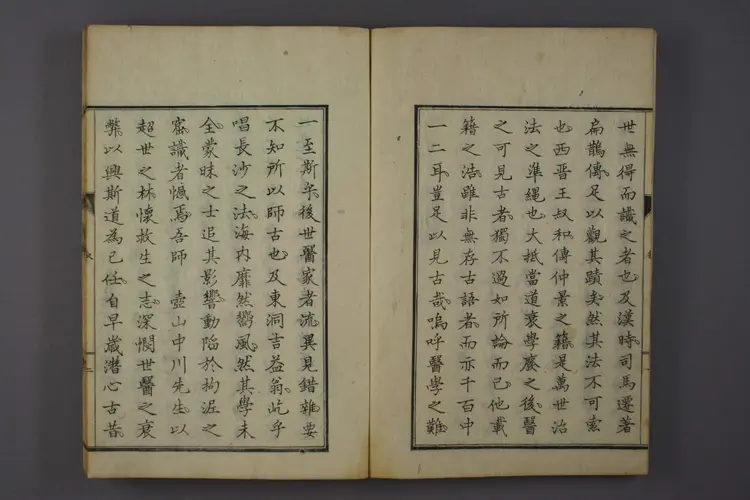 世無得而識之者也及漢時司馬遷著
扁鵲傳足以觀其蹟矣然其法不可索
也西晋王叔和傳仲景之籍是萬世治
法之準縄也大抵當道衰學廢之後醫
之可見古者獨不過如所論而已他載
籍之浩雖非無存古語者而亦千百中
一二耳豈足以見古哉嗚呼醫學之難
一至斯乎後世醫家者流異見錯雜要
不知所以師古也及東洞吉益翁屹乎
唱長沙之法海内靡然嚮風然其學未
全蒙昧之士追其影響動陷於拘泥之
窟識者慨焉吾師 壺山中川先生以
超世之材懷救生之志深憫世醫之衰
弊以興斯道為己任自早歳潛心古昔